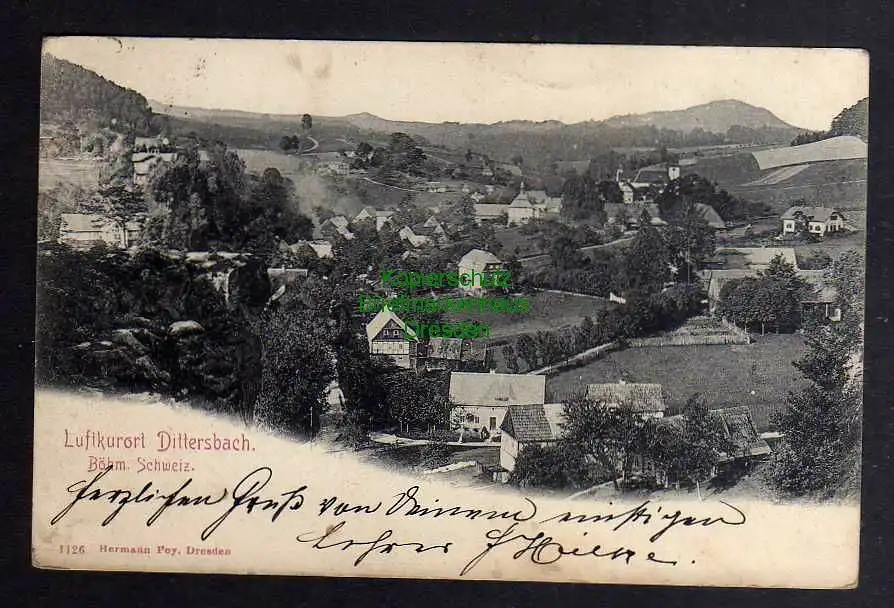 Kopierschutz
Briefmarkenhaus
Dresden
Luftkurort Dittersbach.
Böhm. Schweiz.
Herzlichen Gruss von Deinem einstigen
Lehrer
1126 Hermann Poy, Dresden